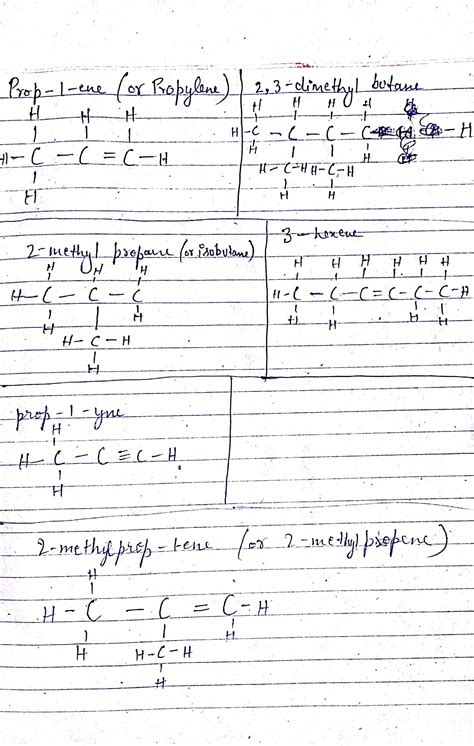 Prop-1-ene (or Propylene)
H H H
H-C-C=C-H
H
2,3-dimethyl butane
H H H H
H-C-C-C-C-H
H H
H-C-H H-C-H
H H
2-methyl propane (or isobutane)
H H H
H-C-C-C
H H
H-C-H
H
3-hexene
H H H H H H
H-C-C-C=C-C-C-H
H H H H
prop-1-yne
H
H-C-C≡C-H
H
2-methylprop-1ene (or 2-methylpropene)
H
H-C-C=C-H
H H-C-H H
H